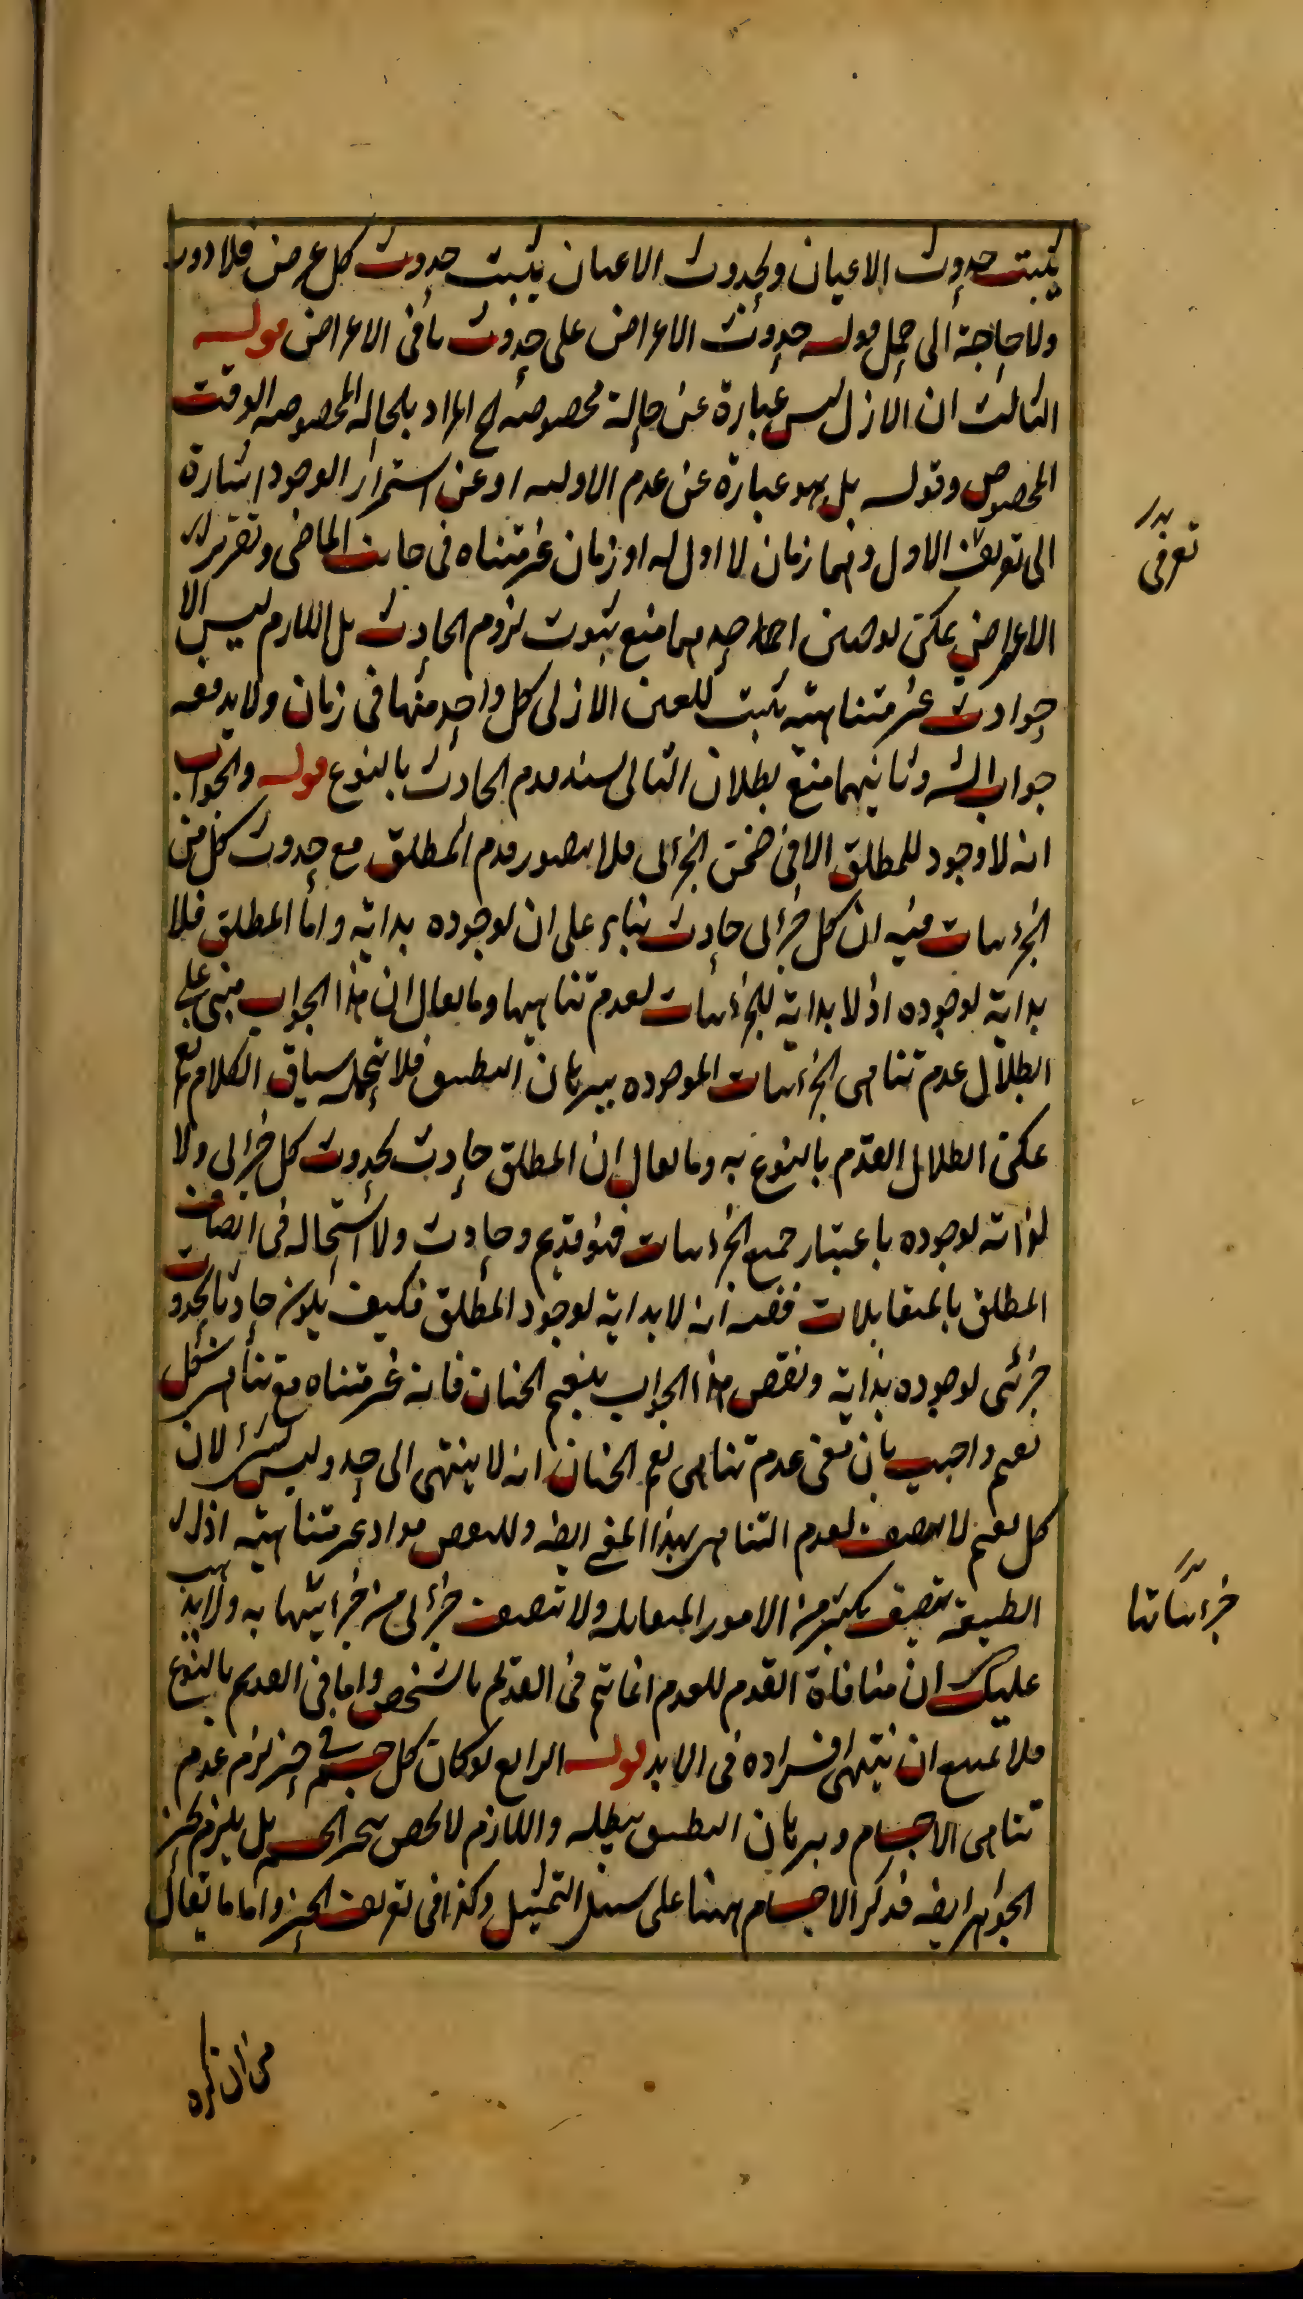 يثبت حدوث الاعيان ولحدوث الاعيان يثبت حدوث كل عرض فلا دور
ولا حاجة الى حمل قوله حدوث الاعراض على حدوث باقى الاعراض قوله
الثالث ان الازل ليس عبارة عن حالة مخصوصه الخ المراد بالحاله المخصوصه الوقت
المخصوص وقوله بل هو عبارة عن عدم الاوليه او عن استمرار الوجود اشارة
الى تعريف الاول وهما زمان لا اول له او زمان غير متناه فى جانب الماضى وتقرير
الاعراض يمكن بوجهين احدهما منع ثبوت لزوم الحادث بل اللازم ليس الا
حوادث غير متناهيته يثبت للعين الازلى كل واحد منها فى زمان ولا يدفعه
جواب الشه وثانيهما منع بطلان التالى لسند قدم الحادث بالنوع قوله والجواب
انه لا وجود للمطلق الا فى ضمن الجزئى فلا يتصور قدم المطلق مع حدوث كل من
الجزئيات فيه ان كل جزئى حادث بناء على ان لوجوده بداية واما المطلق فلا
بداية لوجوده اذ لا بداية للجزئيات لعدم تناهيها وما يقال ان هذا الجواب مبنى على
ابطلال عدم تناهى الجزئيات الموجوده ببرهان التطبيق فلا يتحمله سياق الكلام نعم
يمكن ابطلال القدم بالنوع به وما يقال ان المطلق حادث لحدوث كل جزئى ولا
لذاته لوجوده باعتبار جميع الجزئيات فهو قديم وحادث ولا استحاله فى اتصاف
المطلق بالمتقابلات ففيه انه لا بداية لوجود المطلق فكيف يكون حادثا لحدوث
جزئى لوجوده بداية ونقض هذا الجواب بنعيم الجنان فانه غير متناه مع تناهى كل
نعيم واجيب بان معنى عدم تناهى نعم الجنان انه لا ينتهى الى حد وليس بشئ لان
كل نعيم لا يتصف بعدم التناهى بهذا المعنى ايضه وللنقض مواد غير متناهيه اذ
الطبيعة تتصف بكثير من الامور المتقابله ولا تتصف جزئى من جزئيتها به ولا يذهب
عليك ان منافاة القدم للعدم انما تتم فى القديم بالشخص واما فى القديم بالنوع
فلا يمتنع ان ينتهى افراده فى الابد قوله الرابع لو كان كل جسم فى حيز لزم عدم
تناهى الاجسام وبرهان التطبيق يبطله واللازم لا يخص تحيز الجسم بل يلزم تحيز
الجواهر ايضه فذكر الاجسام ههنا على سبيل التمثيل وكذا فى تعريف الحيز واما ما يقال
تعرفى
جزئياتنا